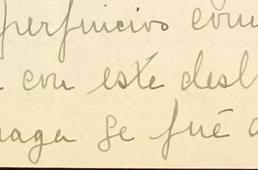 perfinicios com
con este desl
naga se fué a